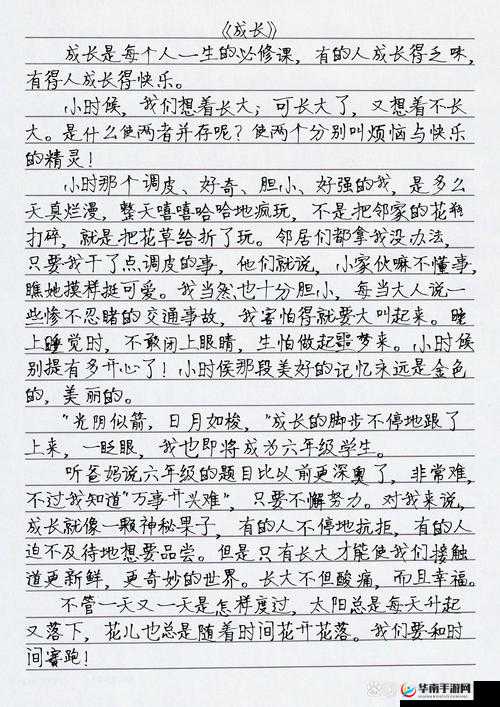 《成长》
成长是每个人一生的必修课，有的人成长得乏味，
有得人成长得快乐。
小时候，我们想着长大；可长大了，又想着不长
大。是什么使两者并存呢？使两个分别叫烦恼与快乐
的精灵！
小时那个调皮、好奇、胆小、好强的我，是多么
天真烂漫，整天嘻嘻哈哈地疯玩，不是把邻家的花瓶
打碎，就是把花草给折了玩。邻居们都拿我没办法，
只要我干了点调皮的事，他们就说，小家伙嘛不懂事，
瞧她摸样挺可爱。我当然也十分胆小，每当大人说一
些惨不忍睹的交通事故，我害怕得就要大叫起来。晚
上睡觉时，不敢闭上眼睛，生怕做起噩梦来。小时候
别提有多开心了！小时候那段美好的记忆永远是金色
的，美丽的。
"光阴似箭，日月如梭，"成长的脚步不停地跟了
上来，一眨眼，我也即将成为六年级学生。
听爸妈说六年级的题目比以前更深奥了，非常难，
不过我知道"万事开兴难"，只要不懈努力。对我来说，
成长就像一颗神秘果子，有的人不停地抗拒，有的人
迫不及待地想要品尝。但是只有长大才能使我们接触
道更新鲜，更奇妙的世界。长大不但酸痛，而且幸福。
不管一天又一天是怎样度过，太阳总是每天升起
又落下，花儿也总是随着时间花开花落。我们要和时
间赛跑！
华南手游网